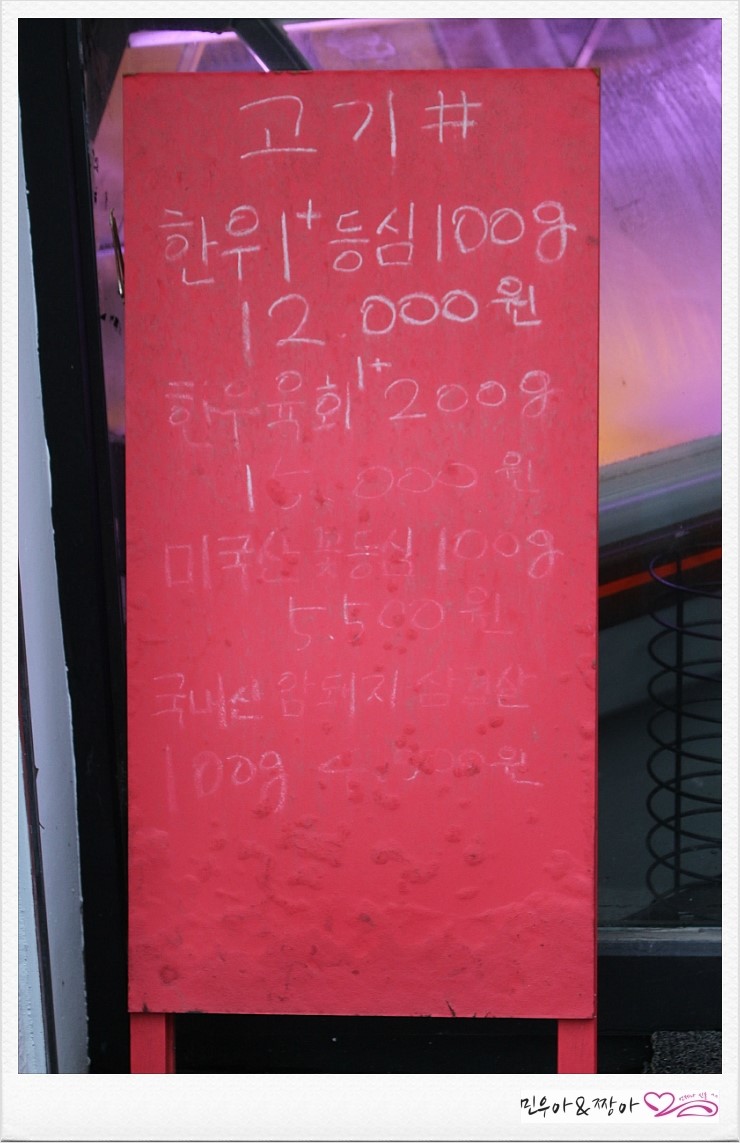 고기#
한우1+등심100g
12.000원
한우육회1+200g
15.000원
미국산꽃등심100g
5.500원
국내산암돼지삼겹살
100g 4.500원
민우아&짱아